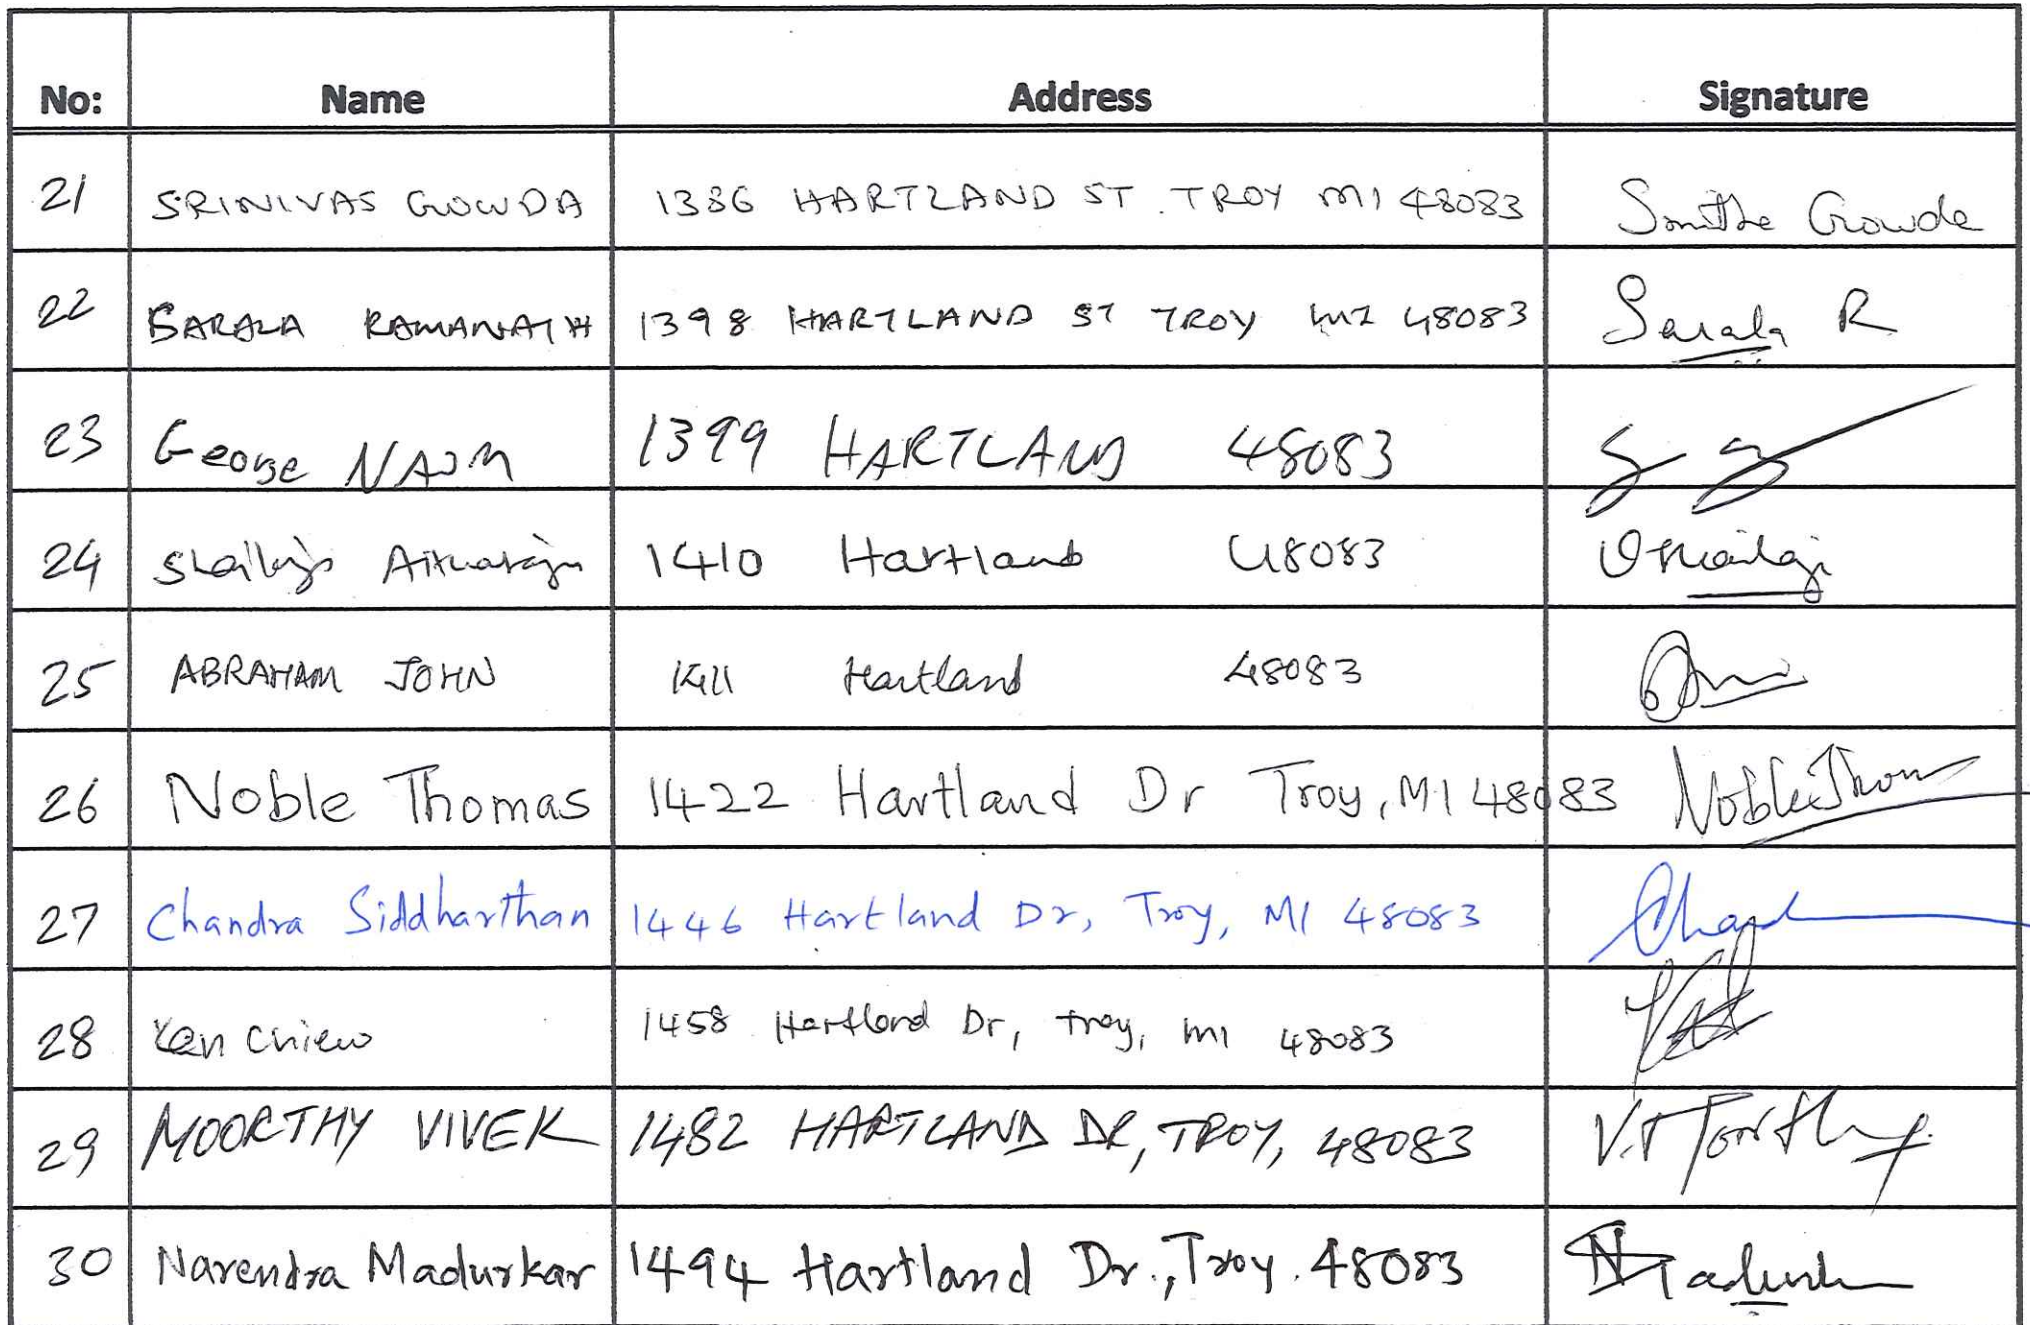 No: Name Address Signature
21 SRINIVAS GOWDA 1386 HARTLAND ST. TROY MI 48083 Smitha Gowda
22 SARALA RAMANATH 1398 HARTLAND ST TROY MI 48083 Sarala R
23 George NAJM 1399 HARTLAND 48083
24 1410 Hartland 48083
25 ABRAHAM JOHN 1411 Hartland 48083
26 Noble Thomas 1422 Hartland Dr Troy, MI 48083 Noble Thom
27 Chandra Siddharthan 1446 Hartland Dr, Troy, MI 48083 Chand
28 Ken Chiew 1458 Hartland Dr, Troy, MI 48083
29 MOORTHY VIVEK 1482 HARTLAND DR, TROY, 48083
30 Narendra Madurkar 1494 Hartland Dr., Troy. 48083